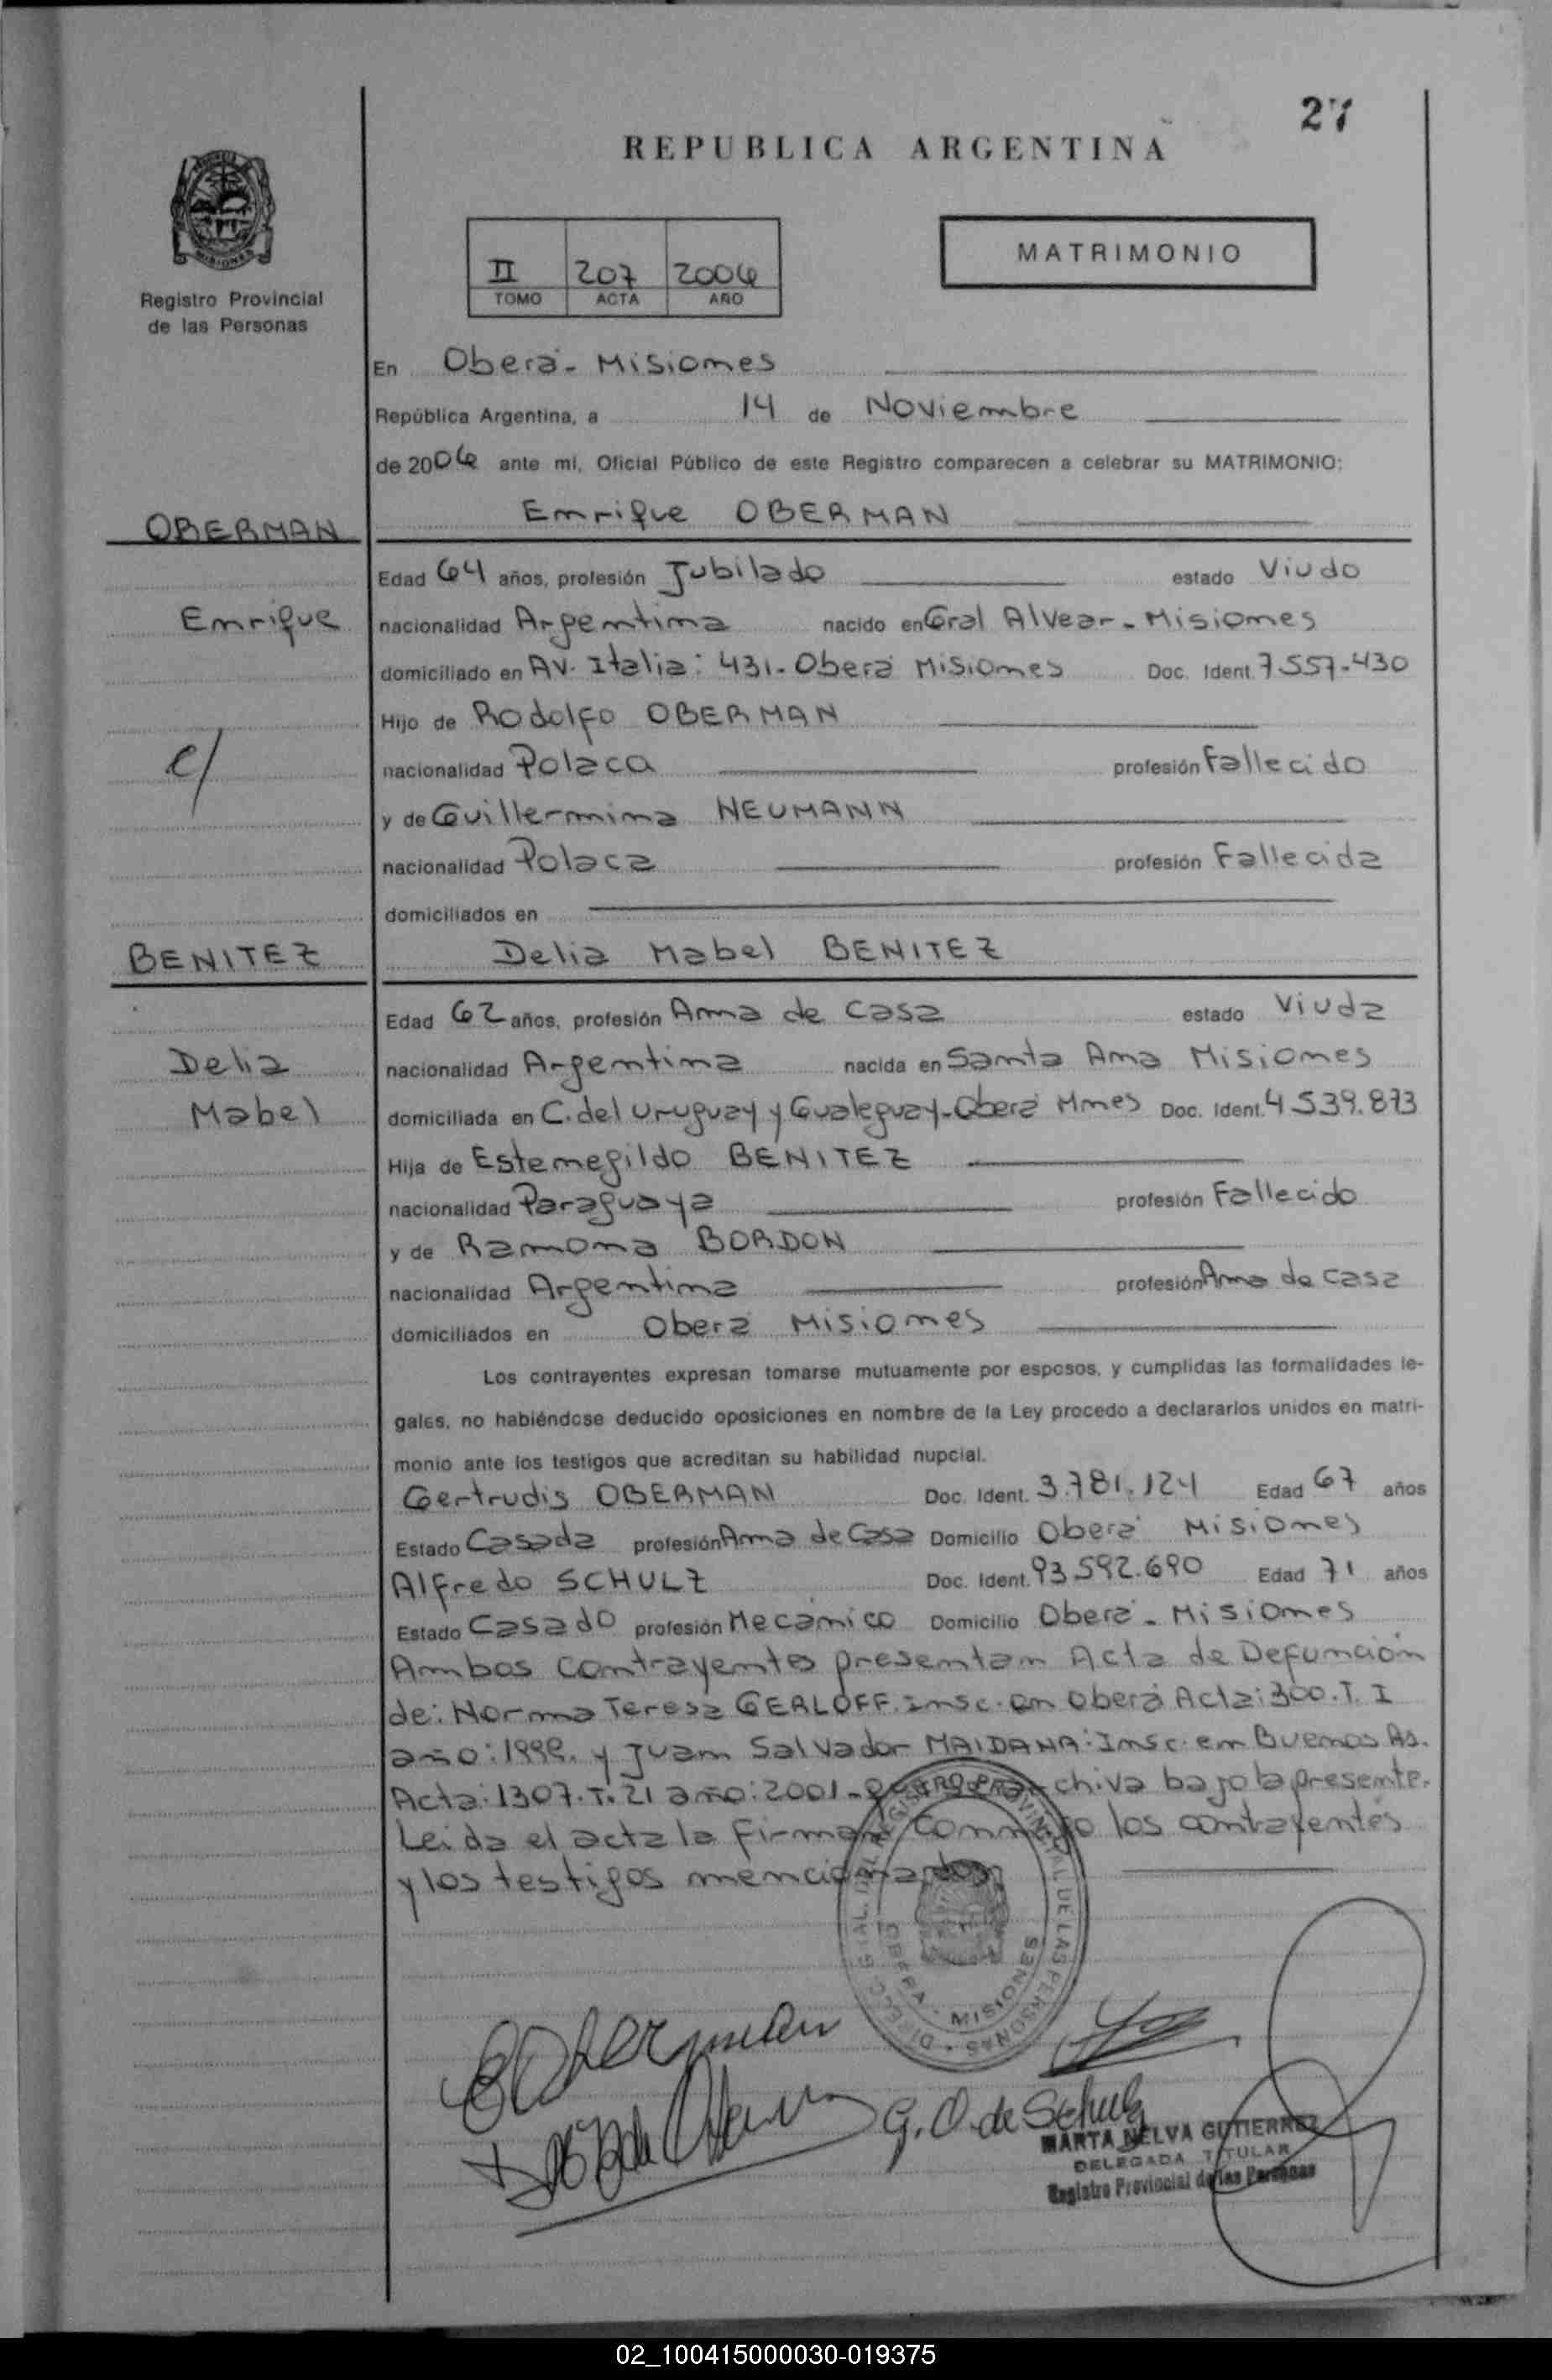 27
REPUBLICA ARGENTINA
MISIONES
Registro Provincial
de las Personas
II 207 2006
TOMO ACTA AÑO
MATRIMONIO
En Oberá - Misiones
República Argentina, a 14 de Noviembre
de 2006 ante mí, Oficial Público de este Registro comparecen a celebrar su MATRIMONIO:
OBERMAN Enrique OBERMAN
Edad 64 años, profesión Jubilado estado Viudo
Enrique nacionalidad Argentina nacido en Gral Alvear - Misiones
domiciliado en AV. Italia: 431 - Oberá Misiones Doc. Ident. 7.557.430
Hijo de Rodolfo OBERMAN
c/ nacionalidad Polaca profesión Fallecido
y de Guillermina NEUMANN
nacionalidad Polaca profesión Fallecida
domiciliados en
BENITEZ Delia Mabel BENITEZ
Edad 62 años, profesión Ama de casa estado Viuda
Delia nacionalidad Argentina nacida en Santa Ana Misiones
Mabel domiciliada en C. del Uruguay y Gualeguay - Oberá Mnes Doc. Ident. 4.539.873
Hija de Estemegildo BENITEZ
nacionalidad Paraguaya profesión Fallecido
y de Ramona BORDON
nacionalidad Argentina profesión Ama de casa
domiciliados en Oberá Misiones
Los contrayentes expresan tomarse mutuamente por esposos, y cumplidas las formalidades le-
gales, no habiéndose deducido oposiciones en nombre de la Ley procedo a declararlos unidos en matri-
monio ante los testigos que acreditan su habilidad nupcial.
Gertrudis OBERMAN Doc. Ident. 3.781.124 Edad 67 años
Estado Casada profesión Ama de Casa Domicilio Oberá Misiones
Alfredo SCHULZ Doc. Ident. 93.592.690 Edad 71 años
Estado Casado profesión Mecánico Domicilio Oberá - Misiones
Ambos contrayentes presentan Acta de Defunción
de: Norma Teresa GERLOFF. Insc. en Oberá Acta: 300. T. I
año: y Juan Salvador MAIDANA: Insc. en Buenos As.
Acta: 1307. T. 21 año: 2001 - archiva bajo la presente.
Leida el acta la firman conmigo los contrayentes
y los testigos mencionados
REGISTRO PROVINCIAL DE LAS PERSONAS
OBERA - MISIONES
EOberman
G. O. de Schulz
MARTA NELVA GUTIERREZ
DELEGADA TITULAR
Registro Provincial de las Personas
02_100415000030-019375